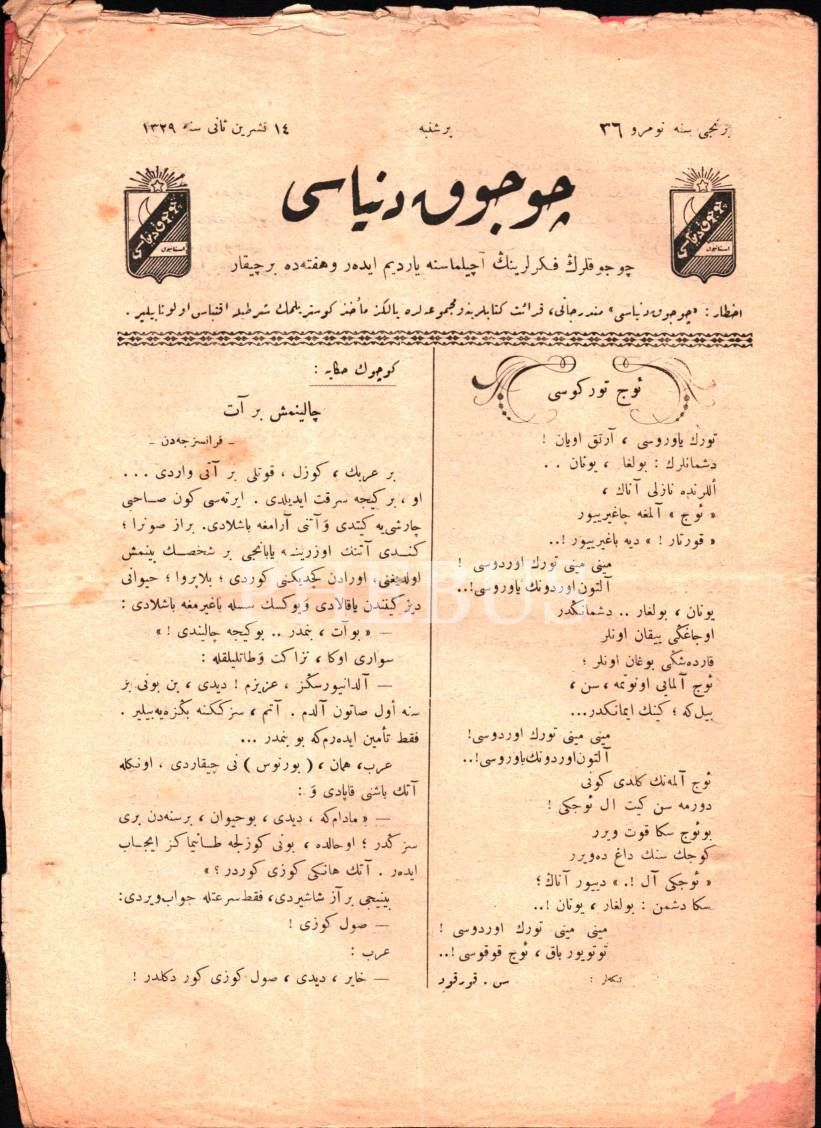 برنجی سنه نومرو ٣٦
پرشنبه
١٤ تشرین ثانی سنه ١٣٢٩
چوجوق دنیاسی
چوجوق دنیاسی
چوجوق دنیاسی
چوجوقلرڭ فکرلرینڭ آچیلماسنه یاردیم ایده‌ر و هفته‌ده بر چیقار
اخطار : «چوجوق دنیاسی» مندرجاتی، قرائت کتابلرینه و مجموعه‌لره یالکز مأخذ کوستریلمك شرطیله اقتباس اولونابیلیر.
ئوج تورکوسی
تورك یاوروسی ، آرتق اویان !
دشمانلرك : بولغار ، یونان . .
أللرنده نازلی آناك ،
« ئوج » آلمغه جاغیرییور
« قورتار ! » دیه باغیرییور !..
مینی مینی تورك اوردوسی !
آلتون اوردونك یاوروسی !..
یونان ، بولغار .. دشمانكدر
اوجاغڭی ییقان اونلر
قارده‌شڭی بوغان اونلر ؛
ئوج آلمایی اونوتمه ، سن ،
بیل که ؛ کینك ایمانكدر...
مینی مینی تورك اوردوسی!
آلتون اوردونك یاوروسی!..
ئوج آلمه‌نك کلدی کونی
دورمه سن کیت ال ئوجكی !
بو ئوج سكا قوت ویرر
کوجك سنك داغ ده‌ویرر
« ئوجكی آل !. » دییور آناڭ ؛
سكا دشمن : بولغار ، یونان !..
مینی مینی تورك اوردوسی !
توتویور باق ، ئوج قوقوسی !..
س . قورقود
کوچوك حکایه :
چالینمش بر آت
ـ فرانسزجه‌دن ـ
بر عربك ، کوزل ، قوتلی بر آتی واردی ...
او ، بر کیجه سرقت ایدیلدی . ایرته‌سی کون صاحبی
چارشی‌یه کیتدی وَ آتنی آرامغه باشلادی. براز صوڭرا ؛
کندی آتنك اوزرینه یابانجی بر شخصك بینمش
اولدیغنی، اورادن کچدیکنی کوردی ؛ بلاپروا ؛ حیوانی
دیزکیندن یاقالادی وَ یوکسك سسله باغیرمغه باشلادی :
— « بو آت ، بنمدر .. بو کیجه چالیندی ! »
سواری اوکا ، نزاکت وَ طاتلیلقله :
— آلدانیورسکز ، عزیزم ! دیدی ، بن بونی بر
سنه أول صاتون آلدم . آتم ، سزککنه بکزه‌یه‌بیلیر .
فقط تأمین ایده‌رم که بو بنمدر ...
عرب، همان ، ( بورنوس ) نی چیقاردی ، اونکله
آتك باشنی قاپادی وَ :
— « مادام که ، دیدی ، بو حیوان ، بر سنه‌دن بری
سزکدر ؛ او حالده ، بونی کوزلجه طانیماکز ایجاب
ایده‌ر . آتك هانکی کوزی کوردر ؟ »
بینیجی بر آز شاشیردی ، فقط سرعتله جواب ویردی:
— صول کوزی !
عرب :
— خایر ، دیدی ، صول کوزی کور دکلدر !